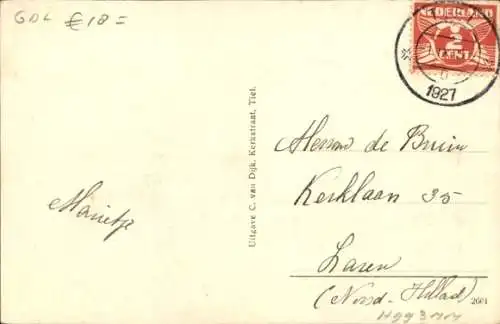 GDL € 18 =
NEDERLAND
2
CENT
1927
Uitgave C. van Dijk, Kerkstraat, Tiel.
de Bruin
Kerklaan 35
Laren
(Noord-Holland)
2601
Marietje